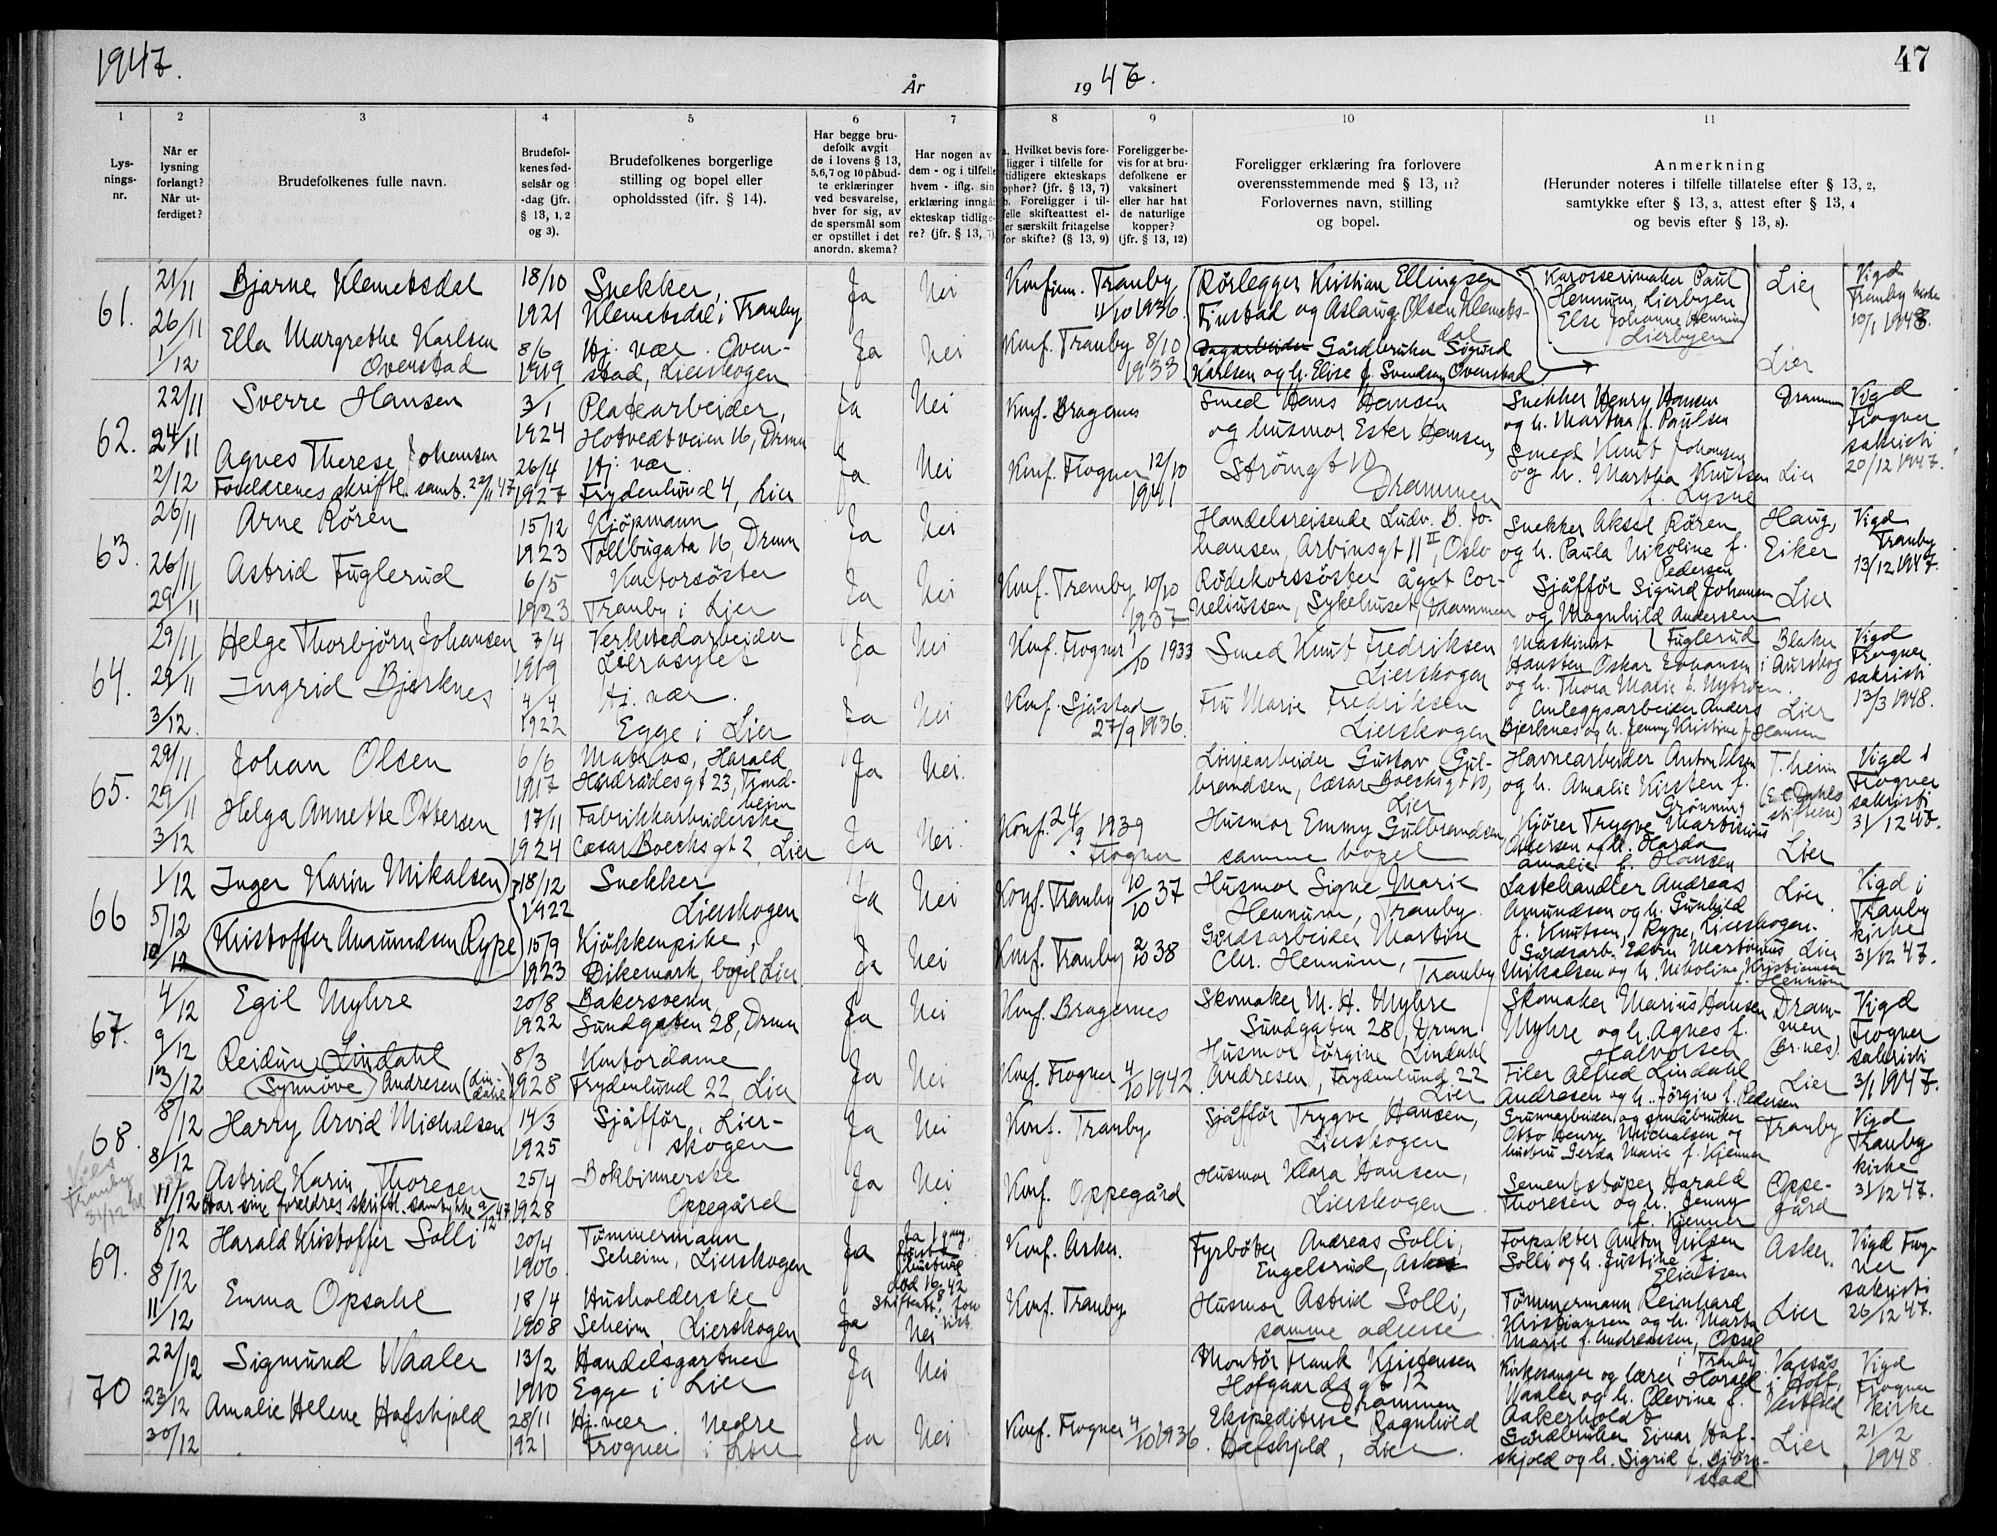 1947.
År
1947.
47
1
2
3
4
5
6
7
8
9
10
11
Lys-
nings-
nr.
Når er
lysning
forlangt?
Når ut-
ferdiget?
Brudefolkenes fulle navn.
Brudefol-
kenes fød-
selsår og
-dag (jfr.
§ 13, 1, 2
og 3).
Brudefolkenes borgerlige
stilling og bopel eller
opholdssted (jfr. § 14).
Har begge bru-
defolk avgit
de i lovens § 13,
5,6,7 og 10 påbud-
te erklæringer
ved besvarelse,
hver for sig, av
de spørsmål som
er opstillet i det
anordn. skema?
Har nogen av
dem - og i tilfelle
hvem - iflg. sin
erklæring inngåt
ekteskap tidlige-
re? (jfr. § 13, 7)
a. Hvilket bevis fore-
ligger i tilfelle for
tidligere ekteskaps
ophør? (jfr. § 13, 7)
b. Foreligger i til-
felle skifteattest el-
ler særskilt fritagelse
for skifte? (§ 13, 9)
Foreligger be-
vis for at bru-
defolkene er
vaksinert
eller har hat
de naturlige
kopper?
(jfr. § 13, 12)
Foreligger erklæring fra forlovere
overensstemmende med § 13, 11?
Forlovernes navn, stilling
og bopel.
Anmerkning
(Herunder noteres i tilfelle tillatelse efter § 13, 2,
samtykke efter § 13, 3, attest efter § 13, 4
og bevis efter § 13, 8).
61.
21/11
26/11
1/12
Bjarne Klemetsdal
Ella Margrethe Karlsen
Overstad
18/10
1921
8/6
1919
Snekker,
Klemetsdal i Tranby
Hj. vær. Over-
stad, Lierskogen
Ja
Ja
Nei
Nei
Konfirm. Tranby
11/10 1936.
Konf. Tranby 8/10
1933
Rørlegger Kristian Ellingsen
Finstad og Aslaug Olsen Klemets-
dal
Dagarbeider Gårdbruker Sigurd
Karlsen og h. Elise f. Svendsen Overstad
Karosserimaker Paul
Hennum, Lierbyen
Else Johanne Hennum
Lierbyen
Lier
Lier
Vigd
Tranby kirke
10/1 1948.
62.
22/11
24/11
2/12
Sverre Hansen
Agnes Therese Johansen
Foreldrenes skriftl. samt. 22/11 47
3/1
1924
26/4
1927
Platearbeider,
Hotvedtveien 16, Drmn
Hj. vær.
Frydenlund 4, Lier
Ja
Ja
Nei
Nei
Konf. Bragernes
Konf. Frogner 12/10
1941
Smed Hans Hansen
og husmor Ester Hansen,
Strömgt 10
Drammen
Snekker Henry Hansen
og h. Martha f. Paulsen
Smed Knut Johansen
og h. Martha Knutsen
f. Lysne
Drammen
Lier
Vigd
Frogner
sakristi
20/12 1947.
63.
26/11
26/11
29/11
Arne Røren
Astrid Fuglerud
15/12
1923
6/5
1923
Kjøpmann
Tollbugata 16, Drmn
Kontorsøster
Tranby i Lier
Ja
Ja
Nei
Nei
Konf. Tranby 10/10
1937
Handelsreisende Ludv. B. Jo-
hansen, Arbinsgt 11 II, Oslo
Rødekorssøster Ågot Cor-
neliussen, Sykehuset, Drammen
Snekker Aksel Røren
og h. Paula Nikoline f.
Pedersen
Sjåffør Sigurd Johansen
og Magnhild Andersen
Fuglerud
Haug,
Eiker
Lier
Vigd
Tranby
13/12 1947.
64.
29/11
29/11
3/12.
Helge Thorbjørn Johansen
Ingrid Bjerknes
3/4
1919
4/4
1922
Verkstedarbeider
Lierasylet
Hj. vær.
Egge i Lier
Ja
Ja
Nei
Nei
Konf. Frogner
1/10 1933
Konf. Sjåstad
27/9 1936.
Smed Knut Fredriksen
Lierskogen
Fru Marie Fredriksen
Lierskogen
Maskinist
Hansten Oskar Johansen
og h. Thora Marie f. Nybroen
Anleggsarbeider Anders
Bjerknes og h. Jenny Kristine f. Hansen
Blaker
i Aurskog
Lier
Vigd
Frogner
sakristi
13/3 1948.
65.
29/11
29/11
3/12
Johan Olsen
Helga Annette Ottersen
6/6
1917
17/11
1924
Matros, Harald
Hadrådesgt 23, Trond-
heim
Fabrikkarbeiderske
Cæsar Boecksgt 2, Lier
Ja
Ja
Nei.
Nei.
Konf. 24/9 1939
Frogner
Linjearbeider Gustav Gul-
brandsen, Cæsar Boecksgt 10,
Lier
Husmor Emmy Gulbrandsen
samme bopel
Havnearbeider Anton Olsen
og h. Amalie Kirsten f.
Grønning
Kjører Trygve Martinius
Ottersen og h. Harda
Amalie f. Hansen
T.heim
(E.C. Dahls
stiftelse)
Lier
Vigd i
Frogner
sakristi
31/12 47.
66
1/12
5/12
10/12
Inger Karin Mikalsen
Kristoffer Amundsen Rype
18/12
1922
15/9
1923
Snekker
Lierskogen
Kjøkkenpike,
Dikemark, bopel Lier
Ja
Ja
Nei
Nei
Konf. Tranby 10/10 37
Konf. Tranby 2/10 38
Husmor Signe Marie
Hennum, Tranby.
Gårdsarbeider Martin
Chr. Hennum, Tranby
Lastehandler Andreas
Amundsen og h. Gunhild
f. Knutsen, Rype, Lierskogen.
Gårdsarb. Edvin Martinius
Mikalsen og h. Nikoline Kristiansen
f. Hennum
Lier
Lier
Vigd i
Tranby
kirke
31/12 47.
67.
4/12
9/12
13/12
Egil Myhre
Reidun Lindahl
(Synnøve) Andresen (Lin-
dahl)
20/8
1922
8/3
1928
Bakersvenn
Sundgaten 28, Drmn
Kontordame
Frydenlund 22, Lier
Ja
Ja
Nei
Nei
Konf. Bragernes
Konf. Frogner 4/10 1942
Skomaker M. H. Myhre
Sundgaten 28, Drmn
Husmor Jørgine Lindahl
Andresen, Frydenlund 22
Lier
Skomaker Marius Hansen
Myhre og h. Agnes f.
Halvorsen
Filer Alfred Lindahl
Andresen og h. Jørgine f. Pedersen
Dram-
men
(Br.nes)
Lier
Vigd
Frogner
sakristi
3/1 1947.
68.
8/12
8/12
11/12
Harry Arvid Michalsen
Astrid Karin Thoresen
Har sine foreldres skriftl. samtykke 9/12 47
14/3
1925
25/4
1928
Sjåffør, Lier-
skogen
Bokbinnerske
Oppegård
Ja
Ja
Nei
Nei
Konf. Tranby
Konf. Oppegård
Sjåffør Trygve Hansen,
Lierskogen
Husmor Klara Hansen,
Lierskogen
Grunnarbeider og småbruker
Otto Henry Michalsen og
hustru Gerda Marie f. Kjenner
Sementstøper Harald
Thoresen og h. Jenny
f. Kjenner
Tranby
Oppe-
gård
Vigd
Tranby
kirke
31/12 47.
69.
8/12
8/12
11/12
Harald Kristoffer Solli
Emma Opsahl
20/4
1906
18/4
1908
Tømmermann
Seheim, Lierskogen
Husholderske
Seheim, Lierskogen
Ja
Ja
Ja 1 gang,
hustru
død 16/8 42
Nei
Konf. Asker.
Konf. Tranby
Fyrbøter Andreas Solli,
Engelsrud, Asker
Husmor Astrid Solli,
samme adresse
Forpakter Anton Nilsen
Solli og h. Justine f.
Eliassen
Tømmermann Reinhard
Kristiansen og h. Marta
Marie f. Andreassen, Opsal
i Tranby
Asker.
Lier
Vigd Frog-
ner
sakristi
26/12 47.
70
22/12
23/12
30/12
Sigmund Waaler
Amalie Helene Hafskjold
13/2
1910
28/11
1921
Handelsgartner
Egge i Lier
Hj. vær. Nedre
Frogner i Lier
Ja
Ja
Nei
Nei
Konf. Frogner 4/10 1936
Montør Frank Kristensen
Hofgaardsgt 12
Drammen
Ekspeditrise Ragnhild
Hafskjold, Lier.
Kirkesanger og lærer Harald
Waaler og h. Olevine f.
Aakerholdt
Gårdbruker Einar Haf-
skjold og h. Sigrid f. Bjørn-
stad
Vassås
i Hoff,
Vestfold
Lier
Vigd
Frogner
kirke
21/2
1948